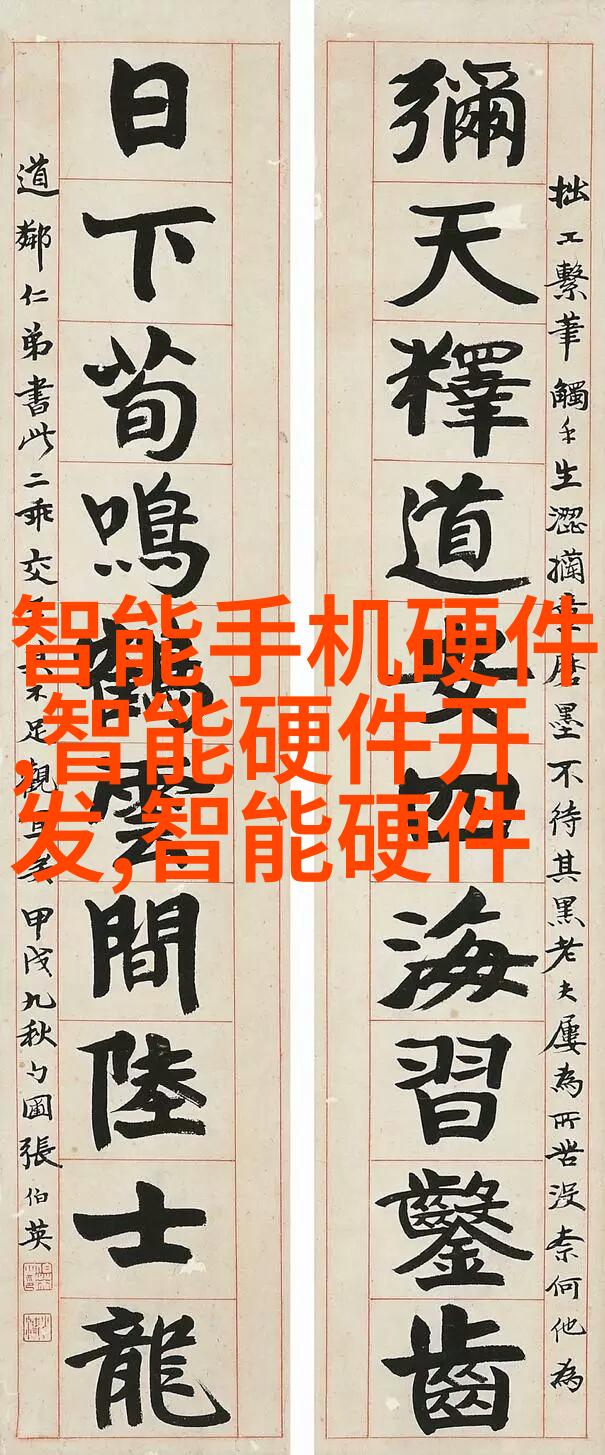 拙工繫筆觸手生澀磨墨不待其黑老夫屢為所苦沒柰何他為
彌天釋道安四海習鑿齒
日下荀鳴鶴雲間陸士龍
道鄰仁弟書此二乖交不足觀甲戌九秋勺圃張伯英
智能手机硬件
,智能硬件开
发,智能硬件